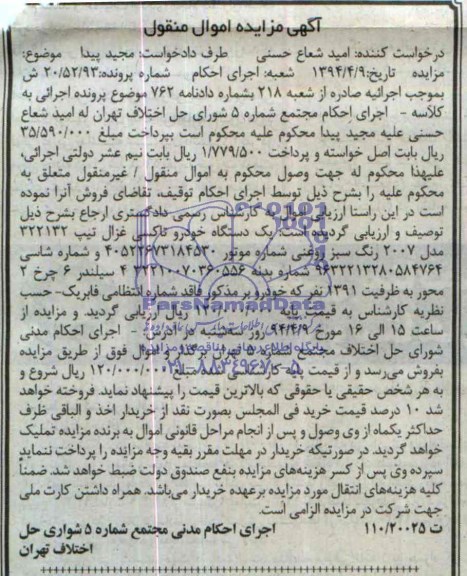 آگهی مزایده اموال منقول
درخواست کننده: امید شعاع حسنی طرف دادخواست: مجید پیدا موضوع:
مزایده تاریخ: ۱۳۹۴/۴/۹ شعبه: اجرای احکام شماره پرونده: ۲۰/۵۲/۹۳ ش
بموجب اجرائیه صادره از شعبه ۲۱۸ بشماره دادنامه ۷۶۲ موضوع پرونده اجرائی به
کلاسه - اجرای احکام مجتمع شماره ۵ شورای حل اختلاف تهران له امید شعاع
حسنی علیه مجید پیدا محکوم علیه محکوم است بپرداخت مبلغ ۳۵/۵۹۰/۰۰۰
ریال بابت اصل خواسته و پرداخت ۱/۷۷۹/۵۰۰ ریال بابت نیم عشر دولتی اجرائی،
علیهذا محکوم له جهت وصول محکوم به اموال منقول / غیرمنقول متعلق به
محکوم علیه را بشرح ذیل توسط اجرای احکام توقیف، تقاضای فروش آنرا نموده
است در این راستا ارزیابی اموال به کارشناس رسمی دادگستری ارجاع بشرح ذیل
توصیف و ارزیابی گردیده است: یک دستگاه خودرو تاکسی غزال تیپ ۳۲۲۱۳۲
مدل ۲۰۰۷ رنگ سبز روغنی شماره موتور ۴۰۵۲۲۶۷۳۱۸۴۵۳۰ و شماره شاسی
۹۶۳۲۲۱۳۲۸۰۵۸۴۷۶۴ شماره بدنه ۳۲۲۱۰۰۷۰۳۶۰۵۵۶ ۴ سیلندر ۶ چرخ ۲
محور به ظرفیت ۱۳۹۱ نفر که خودرو پر مذکور فاقد شماره انتظامی فابریک- حسب
نظریه کارشناس به قیمت پایه ریال ارزیابی گردید. و مزایده از
ساعت ۱۵ الی ۱۶ مورخ ۹۴/۴/۹ روز سه‌شنبه در آدرس - اجرای احکام مدنی
شورای حل اختلاف مجتمع شماره ۵ تهران برگذار و اموال فوق از طریق مزایده
بفروش می‌رسد و از قیمت پایه کارشناسی شده مبلغ ۱۲۰/۰۰۰/۰۰۰ ریال شروع و
به هر شخص حقیقی یا حقوقی که بالاترین قیمت را پیشنهاد نماید. فروخته خواهد
شد ۱۰ درصد قیمت خرید فی المجلس بصورت نقد از خریدار اخذ و الباقی ظرف
حداکثر یکماه از وی وصول و پس از انجام مراحل قانونی اموال به برنده مزایده تملیک
خواهد گردید. در صورتیکه خریدار در مهلت مقرر بقیه وجه مزایده را پرداخت ننماید
سپرده وی پس از کسر هزینه‌های مزایده بنفع صندوق دولت ضبط خواهد شد. ضمناً
کلیه هزینه‌های انتقال مورد مزایده برعهده خریدار می‌باشد. همراه داشتن کارت ملی
جهت شرکت در مزایده الزامی است.
ت ۱۱۰/۲۰۰۲۵ اجرای احکام مدنی مجتمع شماره ۵ شواری حل
اختلاف تهران
ParsNamadData
۰۲۱-۸۸۳۴۹۶۷۰-۵